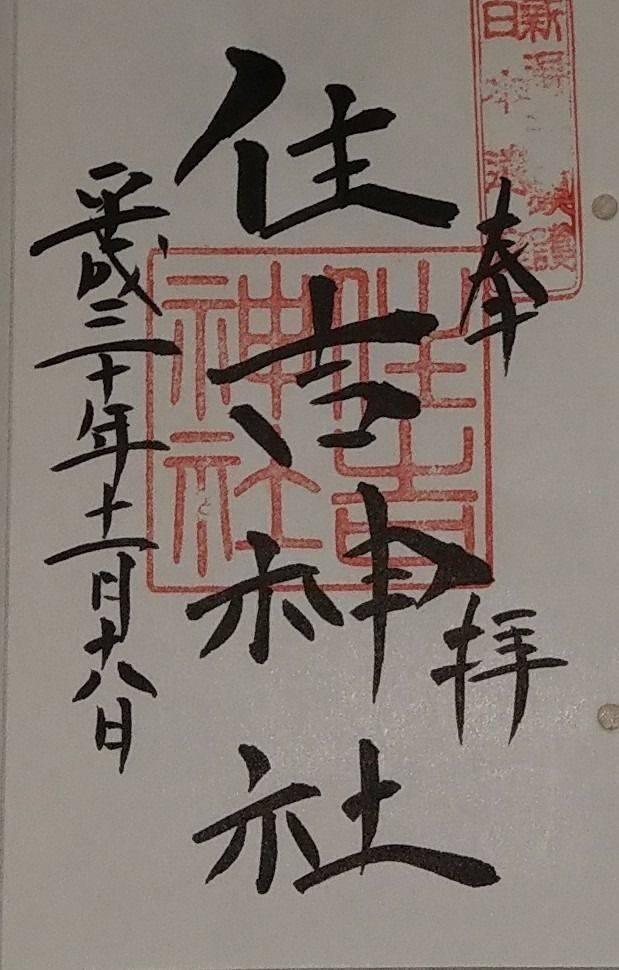 奉
拝
住吉神社
住吉
神社
平成三十年十一月十八日